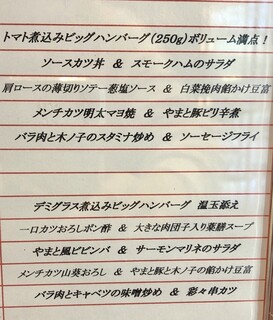 トマト煮込みビッグハンバーグ(250g)ボリューム満点!
ソースカツ丼 & スモークハムのサラダ
肩ロースの薄切りソテー葱塩ソース & 白菜挽肉餡かけ豆富
メンチカツ明太マヨ焼 & やまと豚ピリ辛煮
バラ肉と木ノ子のスタミナ炒め & ソーセージフライ
デミグラス煮込みビッグハンバーグ 温玉添え
一口カツおろしポン酢 & 大きな肉団子入り薬膳スープ
やまと風ビビンバ & サーモンマリネのサラダ
メンチカツ山葵おろし & やまと豚と木ノ子の餡かけ豆富
バラ肉とキャベツの味噌炒め & 彩々串カツ